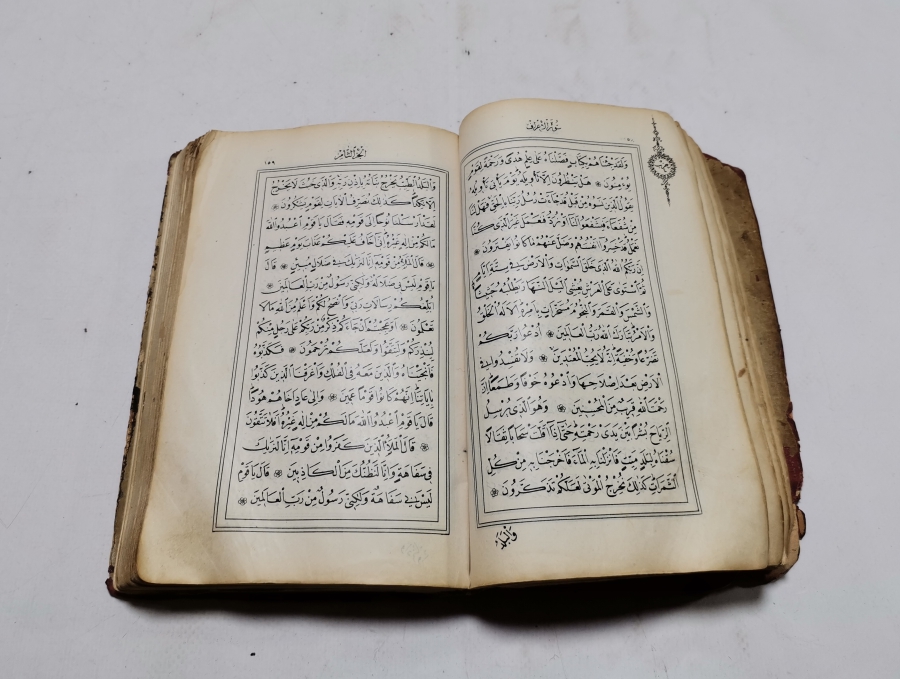 سورة الاعراف
ولقد جئناهم بكتاب فصلناه على علم هدى ورحمة لقوم
يؤمنون ❋ هل ينظرون الا تأويله يوم يأتي تأويله
يقول الذين نسوه من قبل قد جاءت رسل ربنا بالحق فهل لنا
من شفعاء فيشفعوا لنا او نرد فنعمل غير الذي كنا
نعمل قد خسروا انفسهم وضل عنهم ما كانوا يفترون ❋
ان ربكم الله الذي خلق السموات والارض في ستة ايام
ثم استوى على العرش يغشي الليل النهار يطلبه حثيثا
والشمس والقمر والنجوم مسخرات بامره الا له الخلق
والامر تبارك الله رب العالمين ❋ ادعوا ربكم
تضرعا وخفية انه لا يحب المعتدين ❋ ولا تفسدوا في
الارض بعد اصلاحها وادعوه خوفا وطمعا ان
رحمت الله قريب من المحسنين ❋ وهو الذي يرسل
الرياح بشرا بين يدي رحمته حتى اذا اقلت سحابا ثقالا
سقناه لبلد ميت فانزلنا به الماء فاخرجنا به من كل
الثمرات كذلك نخرج الموتى لعلكم تذكرون ❋
والبلد
الجزء الثامن
١٥٩
والبلد الطيب يخرج نباته باذن ربه والذي خبث لا يخرج
الا نكدا كذلك نصرف الآيات لقوم يشكرون ❋
لقد ارسلنا نوحا الى قومه فقال يا قوم اعبدوا الله
مالكم من اله غيره اني اخاف عليكم عذاب يوم عظيم
❋ قال الملأ من قومه انا لنريك في ضلال مبين ❋ قال
يا قوم ليس بي ضلالة ولكني رسول من رب العالمين ❋
ابلغكم رسالات ربي وانصح لكم واعلم من الله مالا
تعلمون ❋ اوعجبتم ان جاءكم ذكر من ربكم على رجل منكم
لينذركم ولتتقوا ولعلكم ترحمون ❋ فكذبوه
فانجيناه والذين معه في الفلك واغرقنا الذين كذبوا
باياتنا انهم كانوا قوما عمين ❋ والى عاد اخاهم هودا
قال يا قوم اعبدوا الله مالكم من اله غيره افلا تتقون
❋ قال الملأ الذين كفروا من قومه انا لنريك
في سفاهة وانا لنظنك من الكاذبين ❋ قال يا قوم
ليس بي سفاهة ولكني رسول من رب العالمين ❋